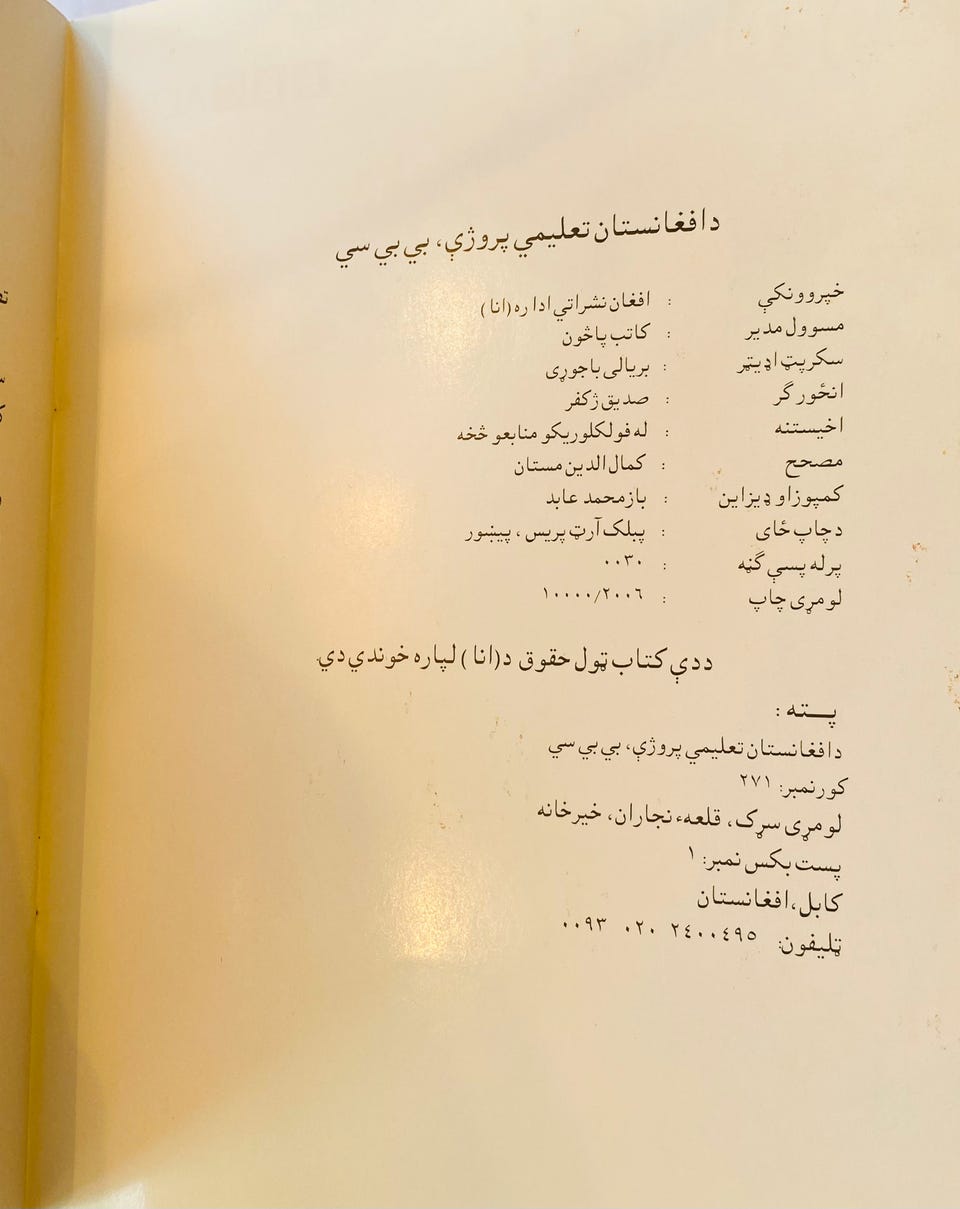 د افغانستان تعلیمي پروژې، بي بي سي
خپروونکي : افغان نشراتي اداره (انا)
مسوول مدیر : کاتب پاڅون
سکرپټ اډیټر : بریالی باجوړی
انځورګر : صدیق ژکفر
اخیستنه : له فولکلوریکو منابعو څخه
مصحح : کمال الدین مستان
کمپوز او ډیزاین : بازمحمد عابد
د چاپ ځای : پبلک آرټ پریس ، پیښور
پرله پسې ګڼه : ۰۰۳۰
لومړی چاپ : ۱۰۰۰۰/۲۰۰٦
ددې کتاب ټول حقوق د (انا) لپاره خوندي دي.
پــته :
د افغانستان تعلیمي پروژې، بي بي سي
کور نمبر: ۲۷۱
لومړی سړک، قلعهء نجاران، خیرخانه
پست بکس نمبر: ۱
کابل، افغانستان
ټلیفون: ۰۰۹۳ ۰۲۰ ۲٤۰۰٤۹٥